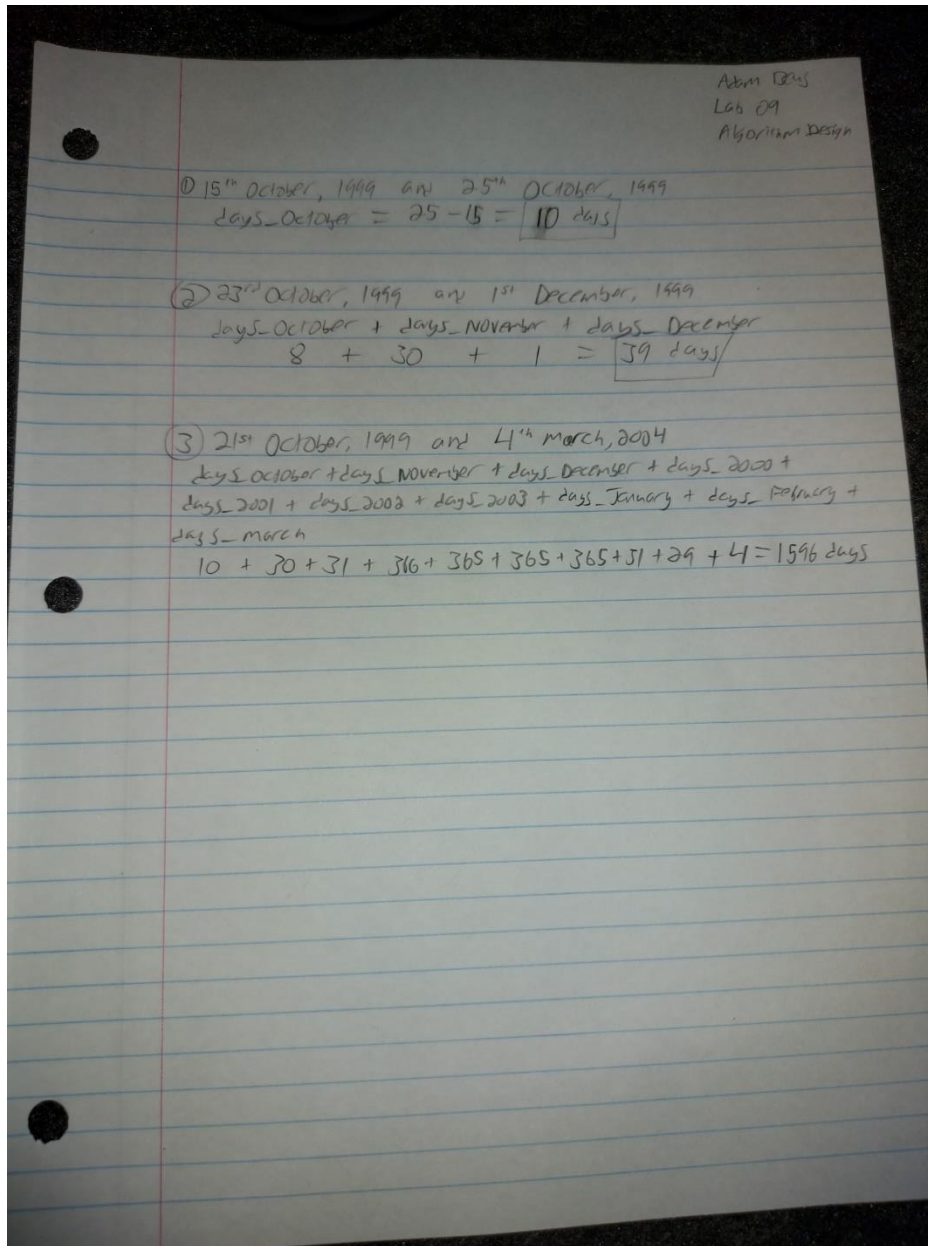 Adam
Lab 09
Algorithm Design
① 15th October, 1999 and 25th October, 1999
days_October = 25 - 15 = 10 days
② 23rd October, 1999 and 1st December, 1999
days_October + days_November + days_December
8 + 30 + 1 = 39 days
③ 21st October, 1999 and 4th march, 2004
days_October + days_November + days_December + days_2000 +
days_2001 + days_2002 + days_2003 + days_January + days_February +
days_march
10 + 30 + 31 + 366 + 365 + 365 + 365 + 31 + 29 + 4 = 1596 days